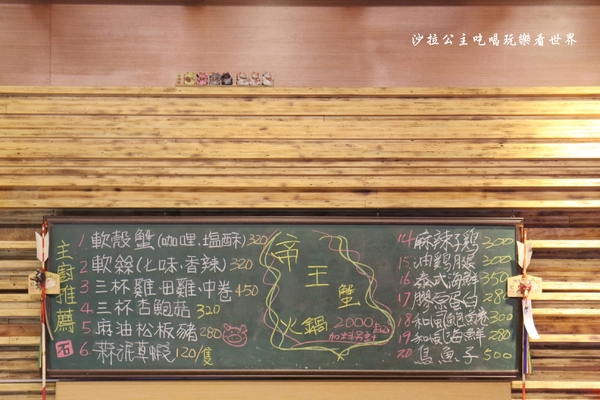 沙拉公主吃喝玩樂看世界
主廚推薦
1. 軟殼蟹(咖哩.塩酥)320
2. 軟絲(七味.香辣)320
3. 三杯雞.田雞.中卷450
4. 三杯杏鮑菇 320
5. 麻油松板豬280
6. 蒜泥草蝦120/隻
帝王蟹
火鍋2000
14 麻辣子雞300
15 油雞腿300
16 泰式海鮮350
17 膠原蛋白280
18 和風
300
19 和風海鮮280
20 烏魚子500